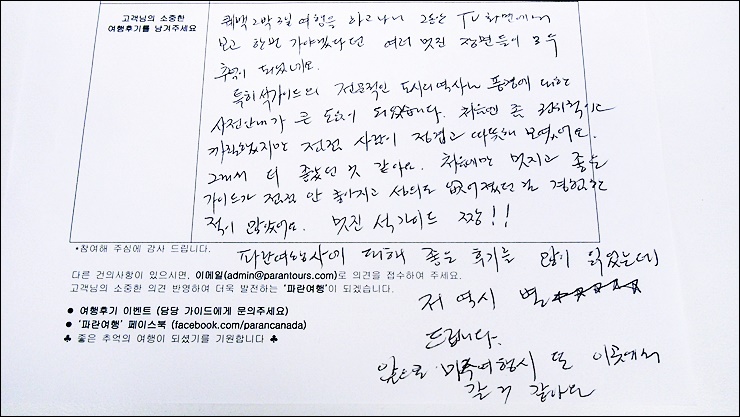 고객님의 소중한
여행후기를 남겨주세요
퀘백 2박3일 여행을 하고나니 그동안 TV화면에서
보고 한번 가야겠다던 여러 멋진 장면들이 모두
추억이 되었네요.
특히 석가이드의 전공적인 도시의 역사나 풍경에 대한
사전안내가 큰 도움이 되었습니다. 처음엔 좀 권위적이고
까칠했지만 점점 사람이 정겹고 따뜻해 보였어요.
그래서 더 좋았던 것 같아요. 처음에만 멋지고 좋은
가이드가 점점 안 좋아지고 성의도 없어졌던 걸 경험한
적이 많았어요. 멋진 석가이드 짱!!
*참여해 주심에 감사 드립니다.
파란여행사에 대해 좋은 후기를 많이 읽었는데
다른 건의사항이 있으시면, 이메일(admin@parantours.com)로 의견을 접수하여 주세요.
고객님의 소중한 의견 반영하여 더욱 발전하는 '파란여행'이 되겠습니다.
저 역시 별☆☆☆☆☆
● 여행후기 이벤트 (담당 가이드에게 문의주세요)
● '파란여행' 페이스북 (facebook.com/parancanada)
드립니다.
♣ 좋은 추억의 여행이 되셨기를 기원합니다 ♣
앞으로 미주여행시 또 이곳에서
갈 거 같아요